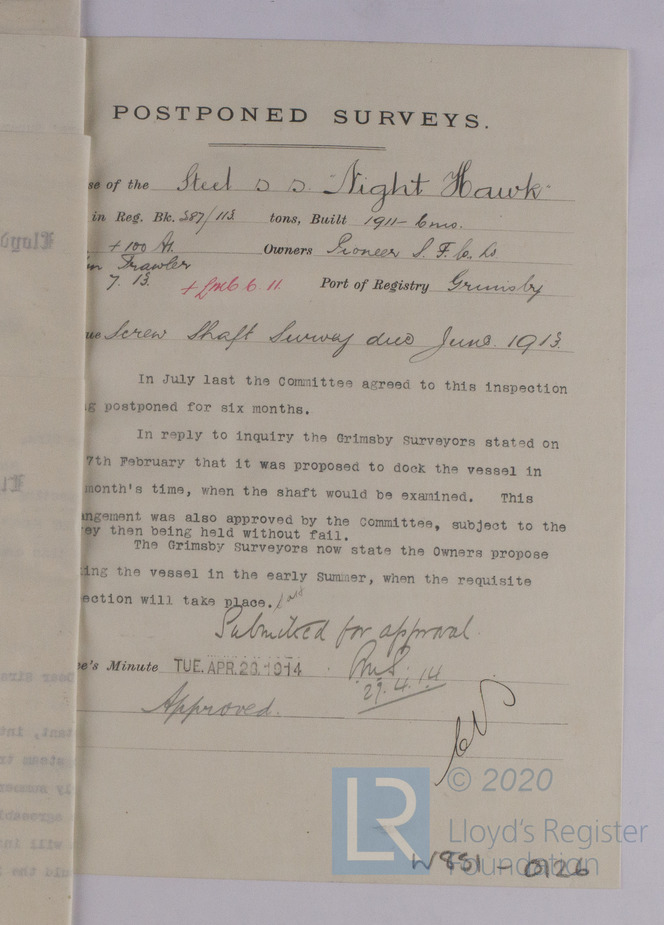 POSTPONED SURVEYS.
se of the Steel S S "Night Hawk"
in Reg. Bk. 387/113 tons, Built 1911-6mo.
+100 A1. Owners Pioneer S. F. Co. Ld
Trawler
7. 13. + LMC 6. 11. Port of Registry Grimsby
ue Screw Shaft Survey due June. 1913.
In July last the Committee agreed to this inspection
g postponed for six months.
In reply to inquiry the Grimsby Surveyors stated on
7th February that it was proposed to dock the vessel in
month's time, when the shaft would be examined. This
angement was also approved by the Committee, subject to the
ey then being held without fail.
The Grimsby Surveyors now state the Owners propose
ing the vessel in the early Summer, when the requisite
ection will take place.
Submitted for approval.
e's Minute TUE. APR. 28. 1914
29.4.14
Approved.
LR
© 2020
Lloyd's Register
Foundation
W851-0126